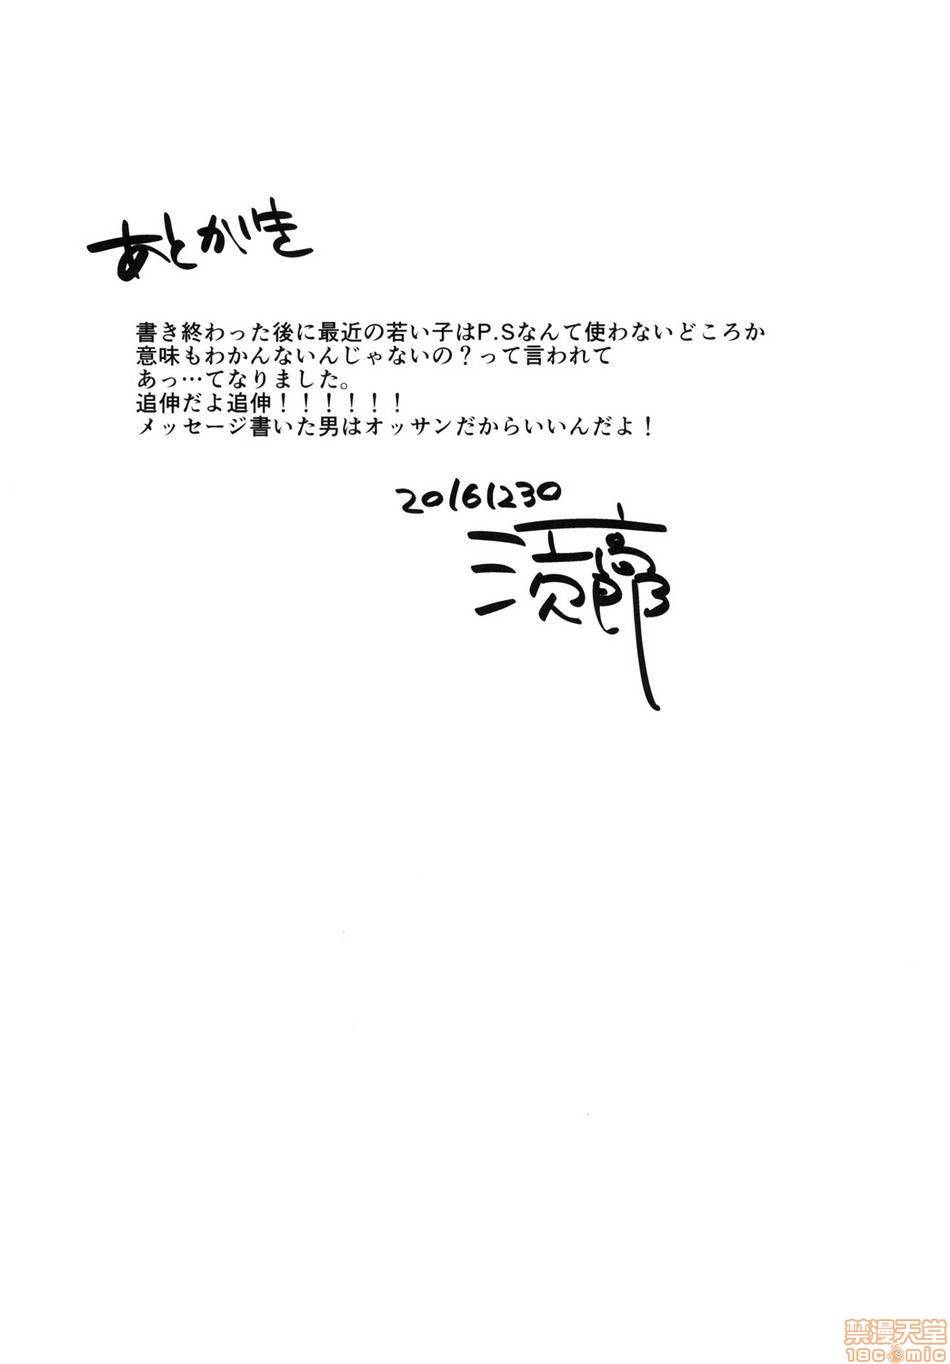 あとがき
書き終わった後に最近の若い子はP.Sなんて使わないどころか
意味もわかんないんじゃないの？って言われて
あっ…てなりました。
追伸だよ追伸！！！！！！
メッセージ書いた男はオッサンだからいいんだよ！
20161230
禁漫天堂
18comic